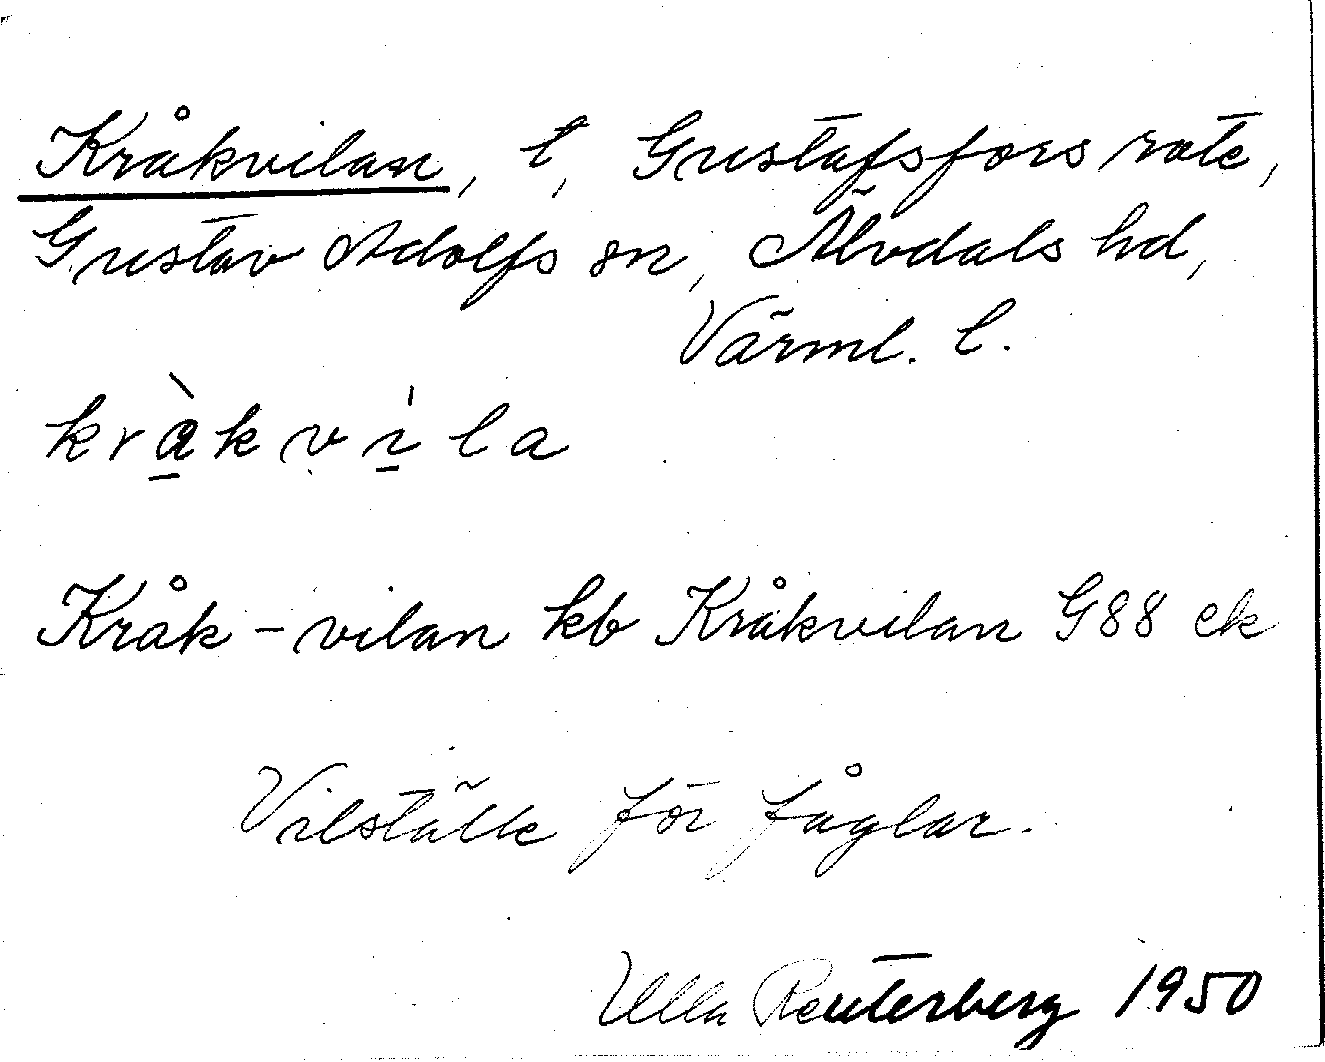 Kråkvilan, t, Gustafsfors rote,
Gustav Adolfs sn, Älvdals hd,
Värml. l.
kràkvìla
Kråk-vilan kb Kråkvilan G88 ek
Vilställe för fåglar.
Ulla Reuterberg 1950